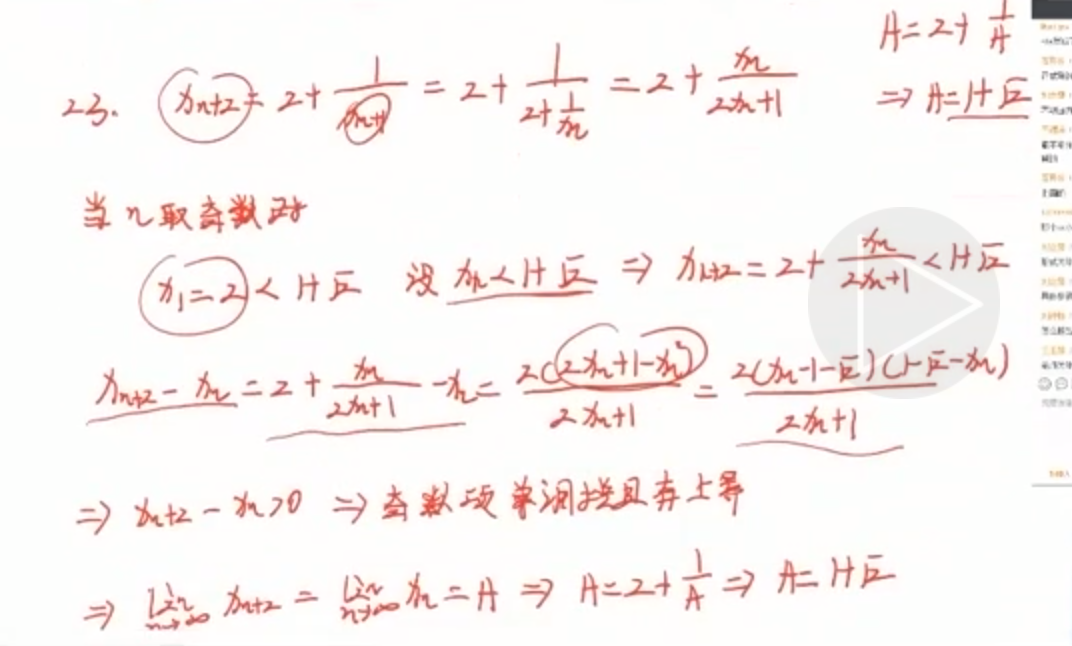 A=2+1/A
⇒ A=1+√2
23. xn+2=2+1/xn+1=2+1/(2+1/xn)=2+xn/(2xn+1)
当n取奇数时
x1=2<1+√2 设xn<1+√2 ⇒ xn+2=2+xn/(2xn+1)<1+√2
xn+2-xn=2+xn/(2xn+1)-xn=2(2xn+1-xn²)/(2xn+1)=2(xn-1-√2)(1-√2-xn)/(2xn+1)
⇒ xn+2-xn>0 ⇒ 奇数项单调增且有上界
⇒ lim n→∞ xn+2=lim n→∞ xn=A ⇒ A=2+1/A ⇒ A=1+√2